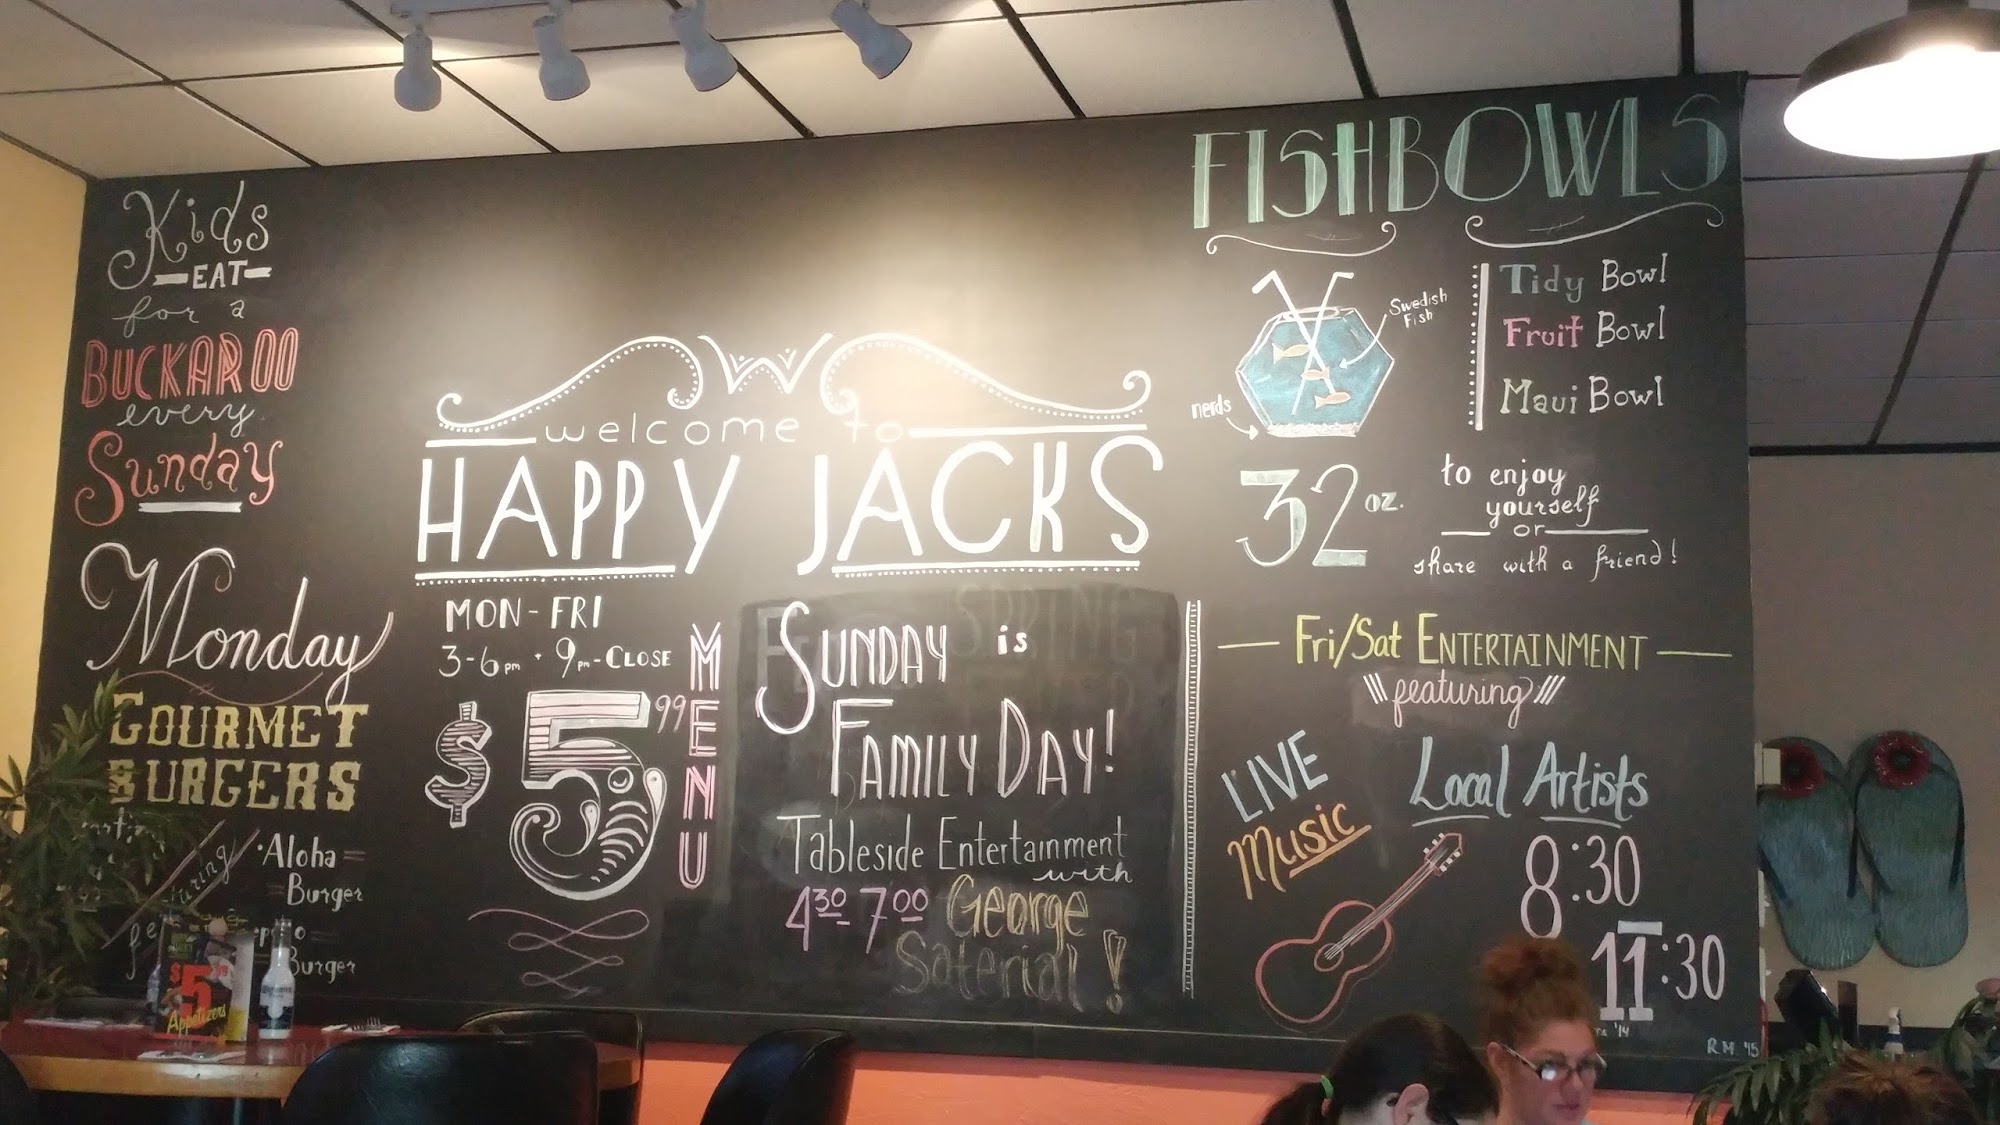 Kids
EAT
for a
BUCKAROO
every
Sunday
Monday
GOURMET
BURGERS
Aloha
Burger
Burger
$5
Appetizers
welcome to
HAPPY JACKS
MON - FRI
3-6pm · 9pm-CLOSE
$5.99
MENU
SUNDAY is
FAMILY DAY!
Tableside Entertainment
with
4:30 7:00 George
Saterial!
FISHBOWLS
Swedish
Fish
nerds
Tidy Bowl
Fruit Bowl
Maui Bowl
32 oz.
to enjoy
yourself
or
share with a friend!
Fri/Sat ENTERTAINMENT
featuring
LIVE
Music
Local Artists
8:30
11:30
'14
R.M. '15